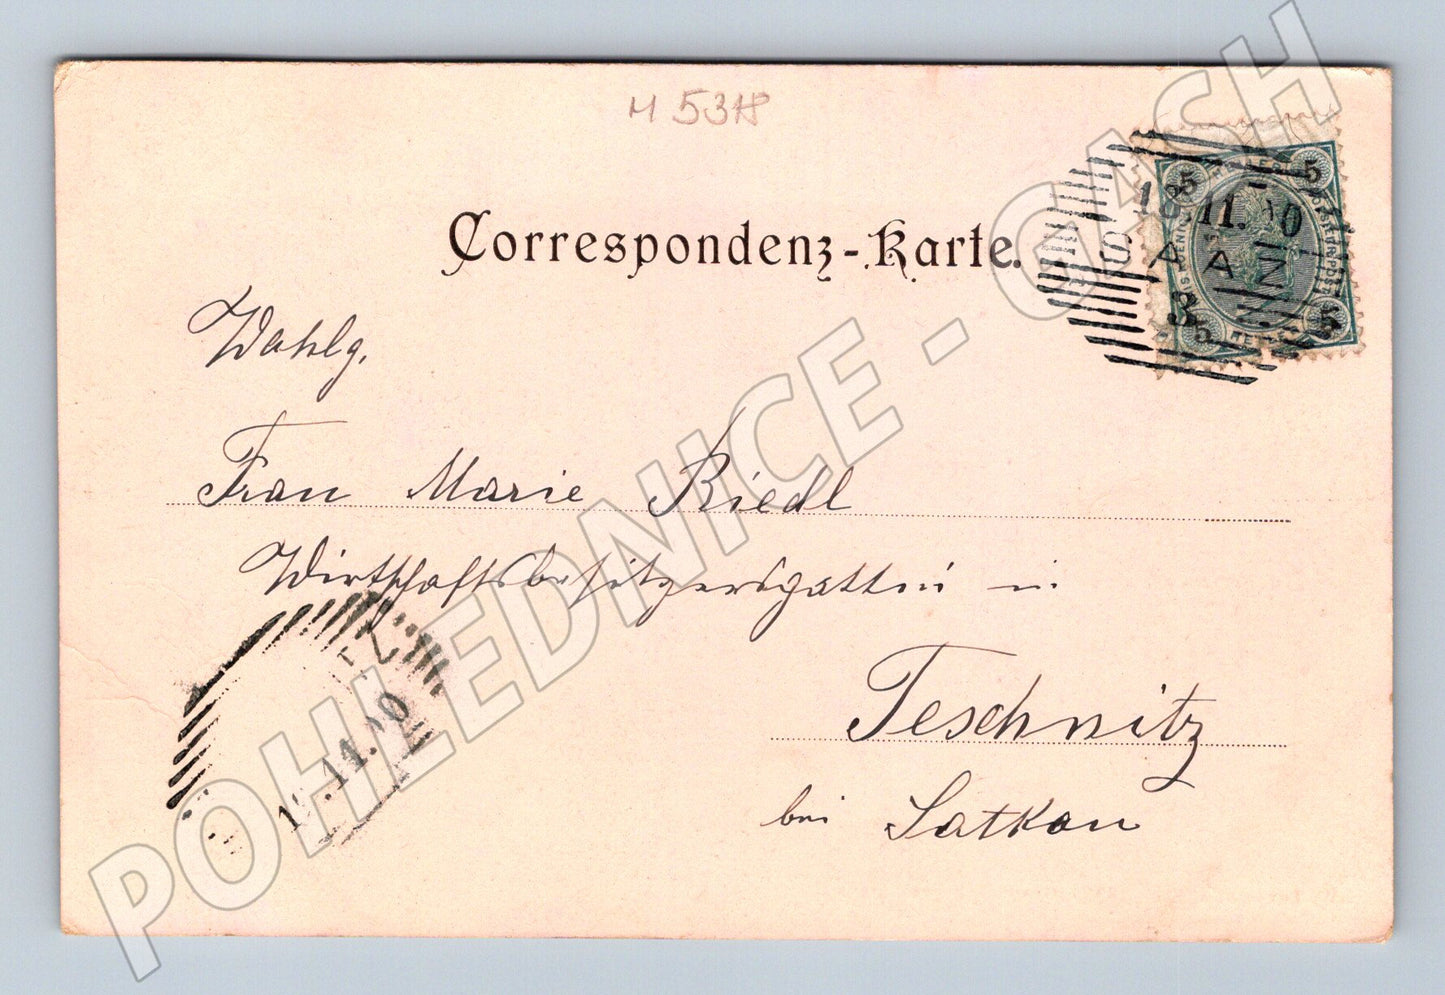 M 538
Correspondenz-Karte.
5 5
18.11.00
SAAZ
3
5 5
Wohlg.
Frau Marie Riedl
Wirthschaftsbesitzersgattin in
Teschnitz
bei Satkau
11.00
POHLEDNICE - GASH